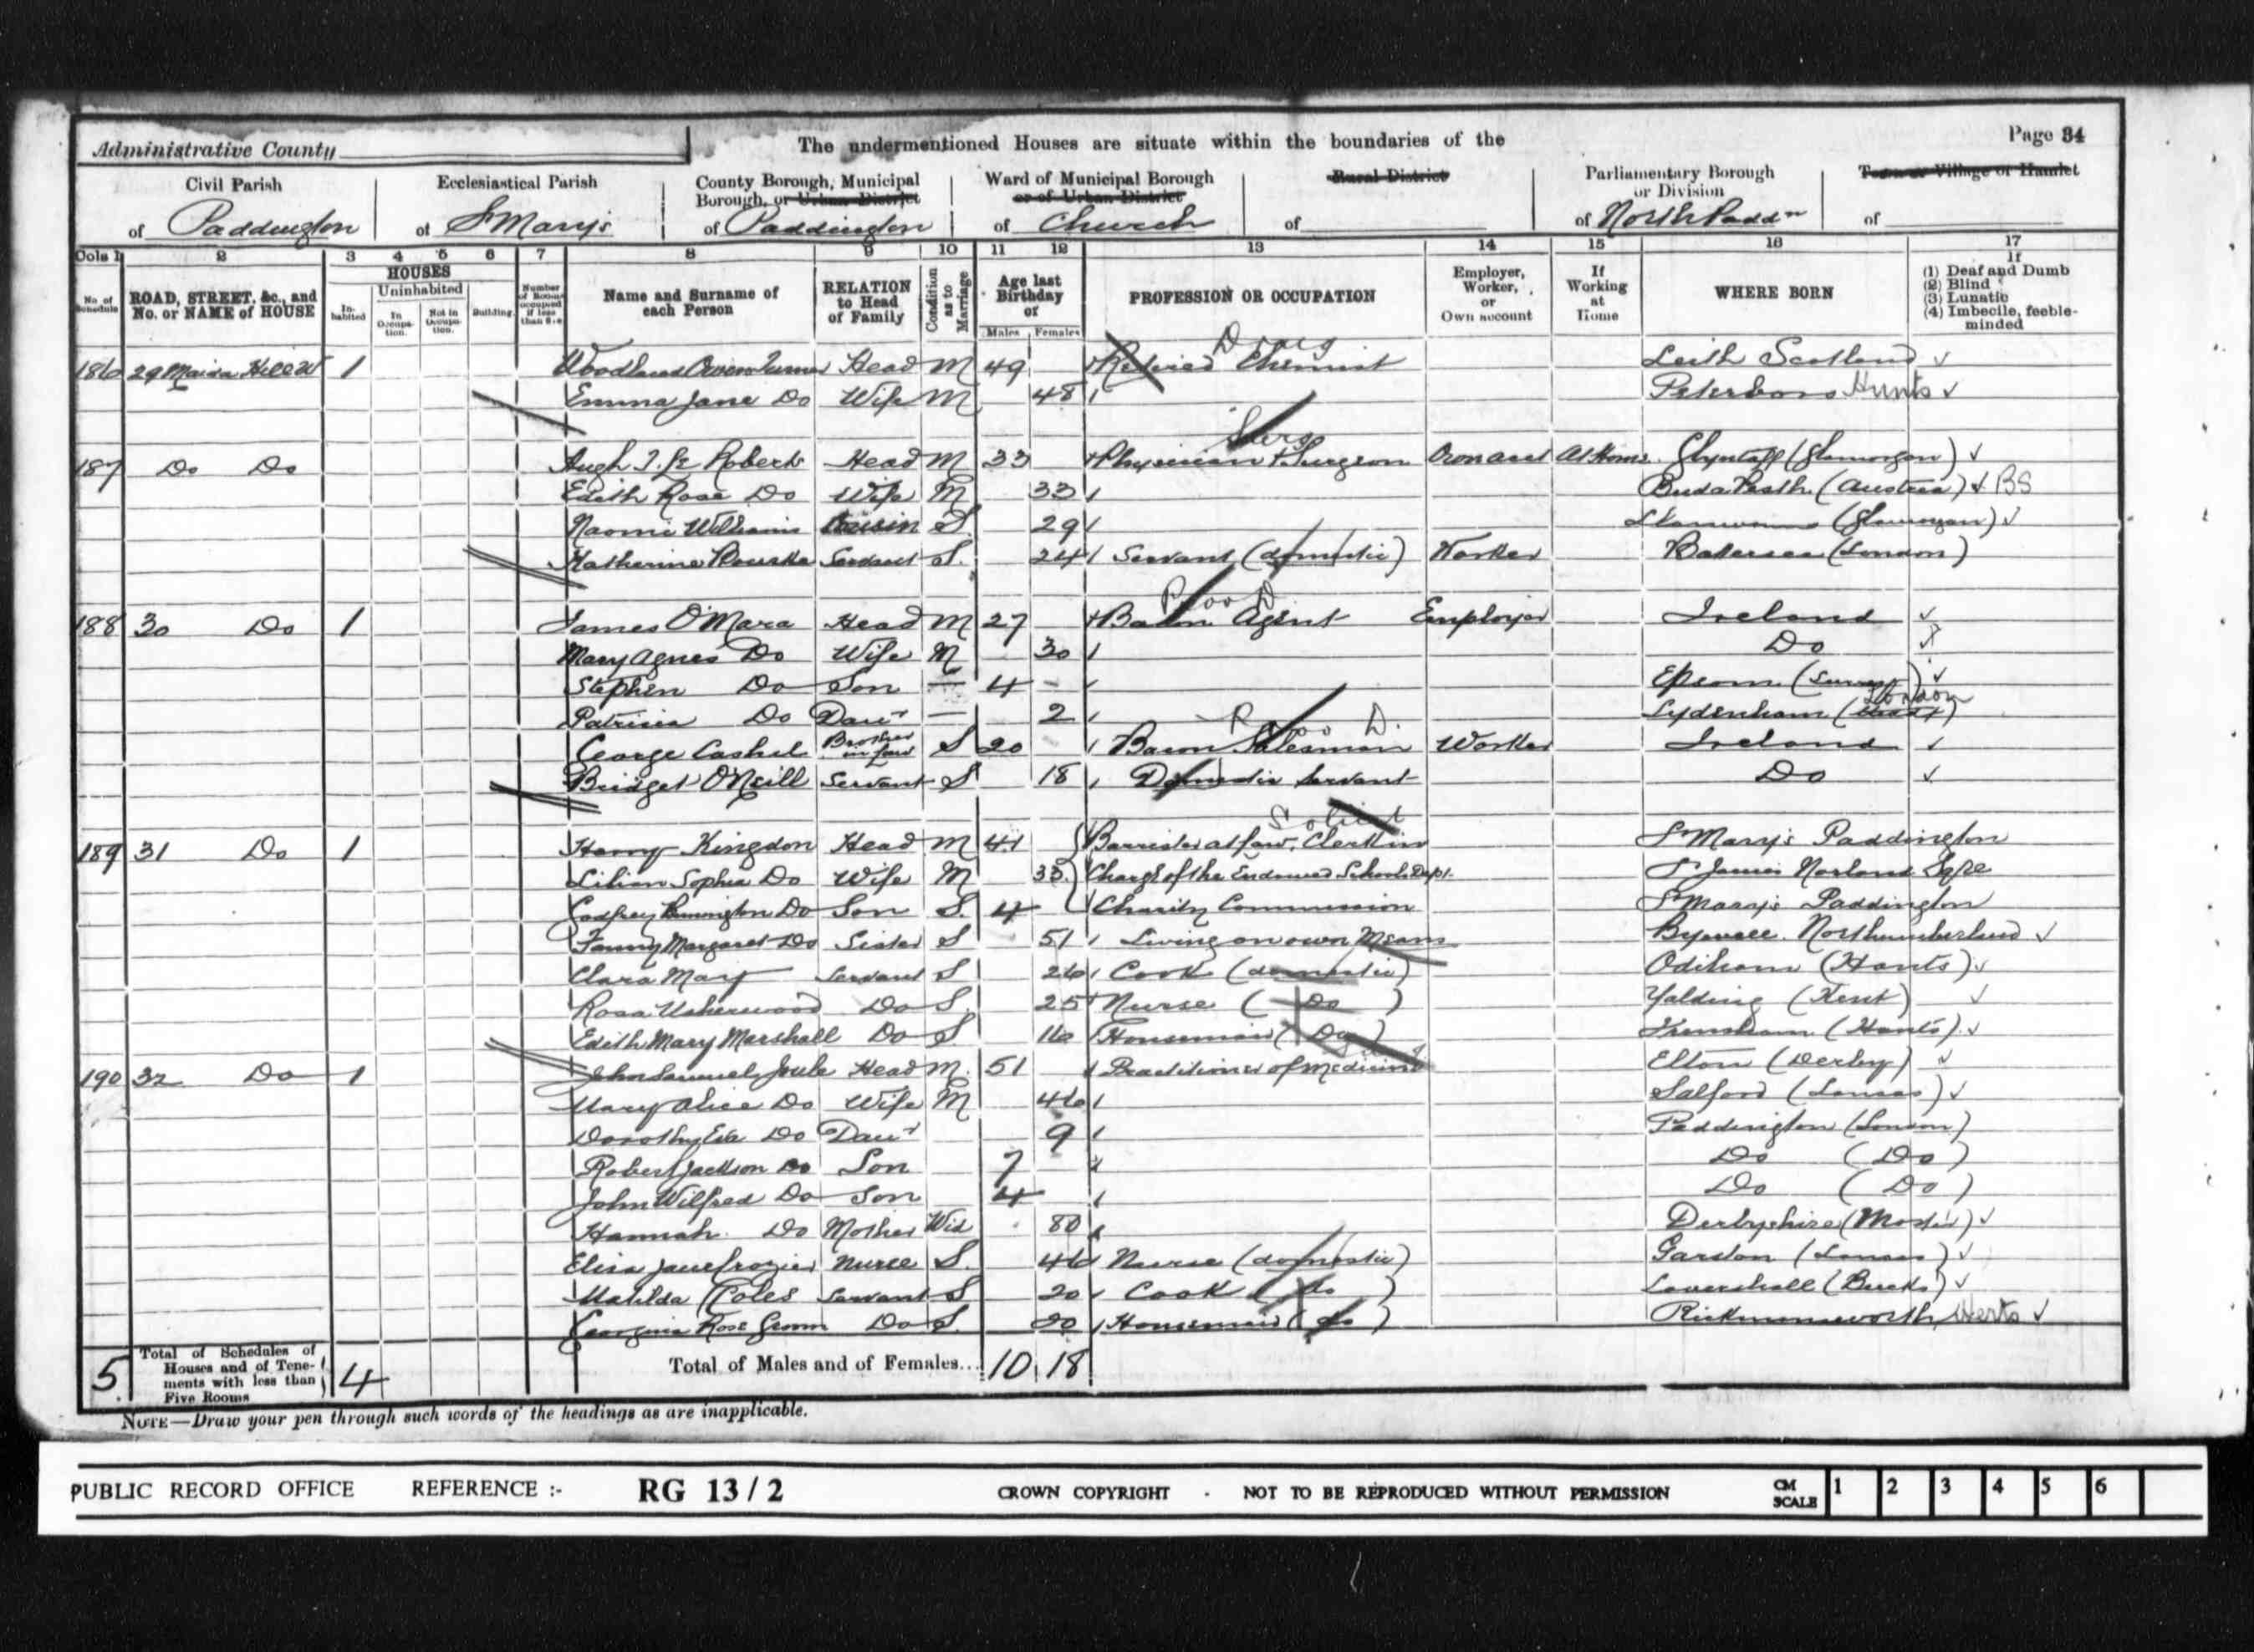 Administrative County
The undermentioned Houses are situate within the boundaries of the
Page 34
Civil Parish of Paddington
Ecclesiastical Parish of St Mary's
County Borough, Municipal Borough, or Urban District of Paddington
Ward of Municipal Borough or of Urban District of Church
Rural District of
Parliamentary Borough or Division of North Paddn
Town or Village or Hamlet of
Cols 1 2 3 4 5 6 7 8 9 10 11 12 13 14 15 16 17
No. of Schedule
ROAD, STREET, &c., and No. or NAME of HOUSE
HOUSES
Inhabited
Uninhabited
In Occupation.
Not in Occupation.
Building.
Number of Rooms occupied if less than five
Name and Surname of each Person
RELATION to Head of Family
Condition as to Marriage
Age last Birthday of
Males Females
PROFESSION OR OCCUPATION
Employer, Worker, or Own account
If Working at Home
WHERE BORN
If (1) Deaf and Dumb (2) Blind (3) Lunatic (4) Imbecile, feeble-minded
Drug
186 29 Maida Hill W 1 Woodland Owen Turner Head M 49 Retired Chemist Leith Scotland
Emma Jane Do Wife M 48 Peterboro Hunts
Surg
187 Do Do Hugh J. Roberts Head M 33 Physician & Surgeon Own acct At Home Glyntaff (Glamorgan)
Edith Rose Do Wife M 33 Buda Pesth (Austria) BS
Naomi Williams Cousin S 29 (Glamorgan)
Katherine Rourke Servant S. 24 Servant (domestic) Worker Battersea (London)
Proo D
188 30 Do 1 James O'Mara Head M 27 Bacon Agent Employer Ireland
Mary Agnes Do Wife M 30 Do
Stephen Do Son — 4 Epsom (Surrey)
Patricia Do Daur — 2 Sydenham (London)
Proo D.
George Cashel Brother in law S 20 Bacon Salesman Worker Ireland
Bridget O'Neill Servant S 18 Domestic Servant Do
Solicit
189 31 Do 1 Harry Kingdon Head M 41 Barrister at Law. Clerk in St Mary's Paddington
Lilian Sophia Do Wife M 33 Charge of the Endowed Schools Dept. St James Norland Sqre
Godfrey Do Son S. 4 Charity Commission St Mary's Paddington
Fanny Margaret Do Sister S 51 Living on own Means Bywell Northumberland
Clara May Servant S 26 Cook (domestic) Odiham (Hants)
Rosa Usherwood Do S. 25 Nurse (Do) Yalding (Kent)
Edith Mary Marshall Do S. 16 Housemaid (Do) (Hants)
190 32 Do 1 John Samuel Joule Head M. 51 Practitioner of Medicine Elton (Derby)
Mary Alice Do Wife M 46 Salford (Lancs)
Dorothy Eva Do Daur 9 Paddington (London)
Robert Jackson Do Son 7 Do (Do)
John Wilfred Do Son 4 Do (Do)
Hannah Do Mother Wid 80 Derbyshire
Eliza Jane Nurse S. 46 Nurse (domestic) Garston (Lancs)
Matilda Coles Servant S 20 Cook (do) (Bucks)
Georgina Rose Do S. 20 Housemaid (do) Rickmansworth, Herts
5 Total of Schedules of Houses and of Tenements with less than Five Rooms 4
Total of Males and of Females... 10 18
NOTE—Draw your pen through such words of the headings as are inapplicable.
PUBLIC RECORD OFFICE REFERENCE :- RG 13/2 CROWN COPYRIGHT - NOT TO BE REPRODUCED WITHOUT PERMISSION CM SCALE 1 2 3 4 5 6